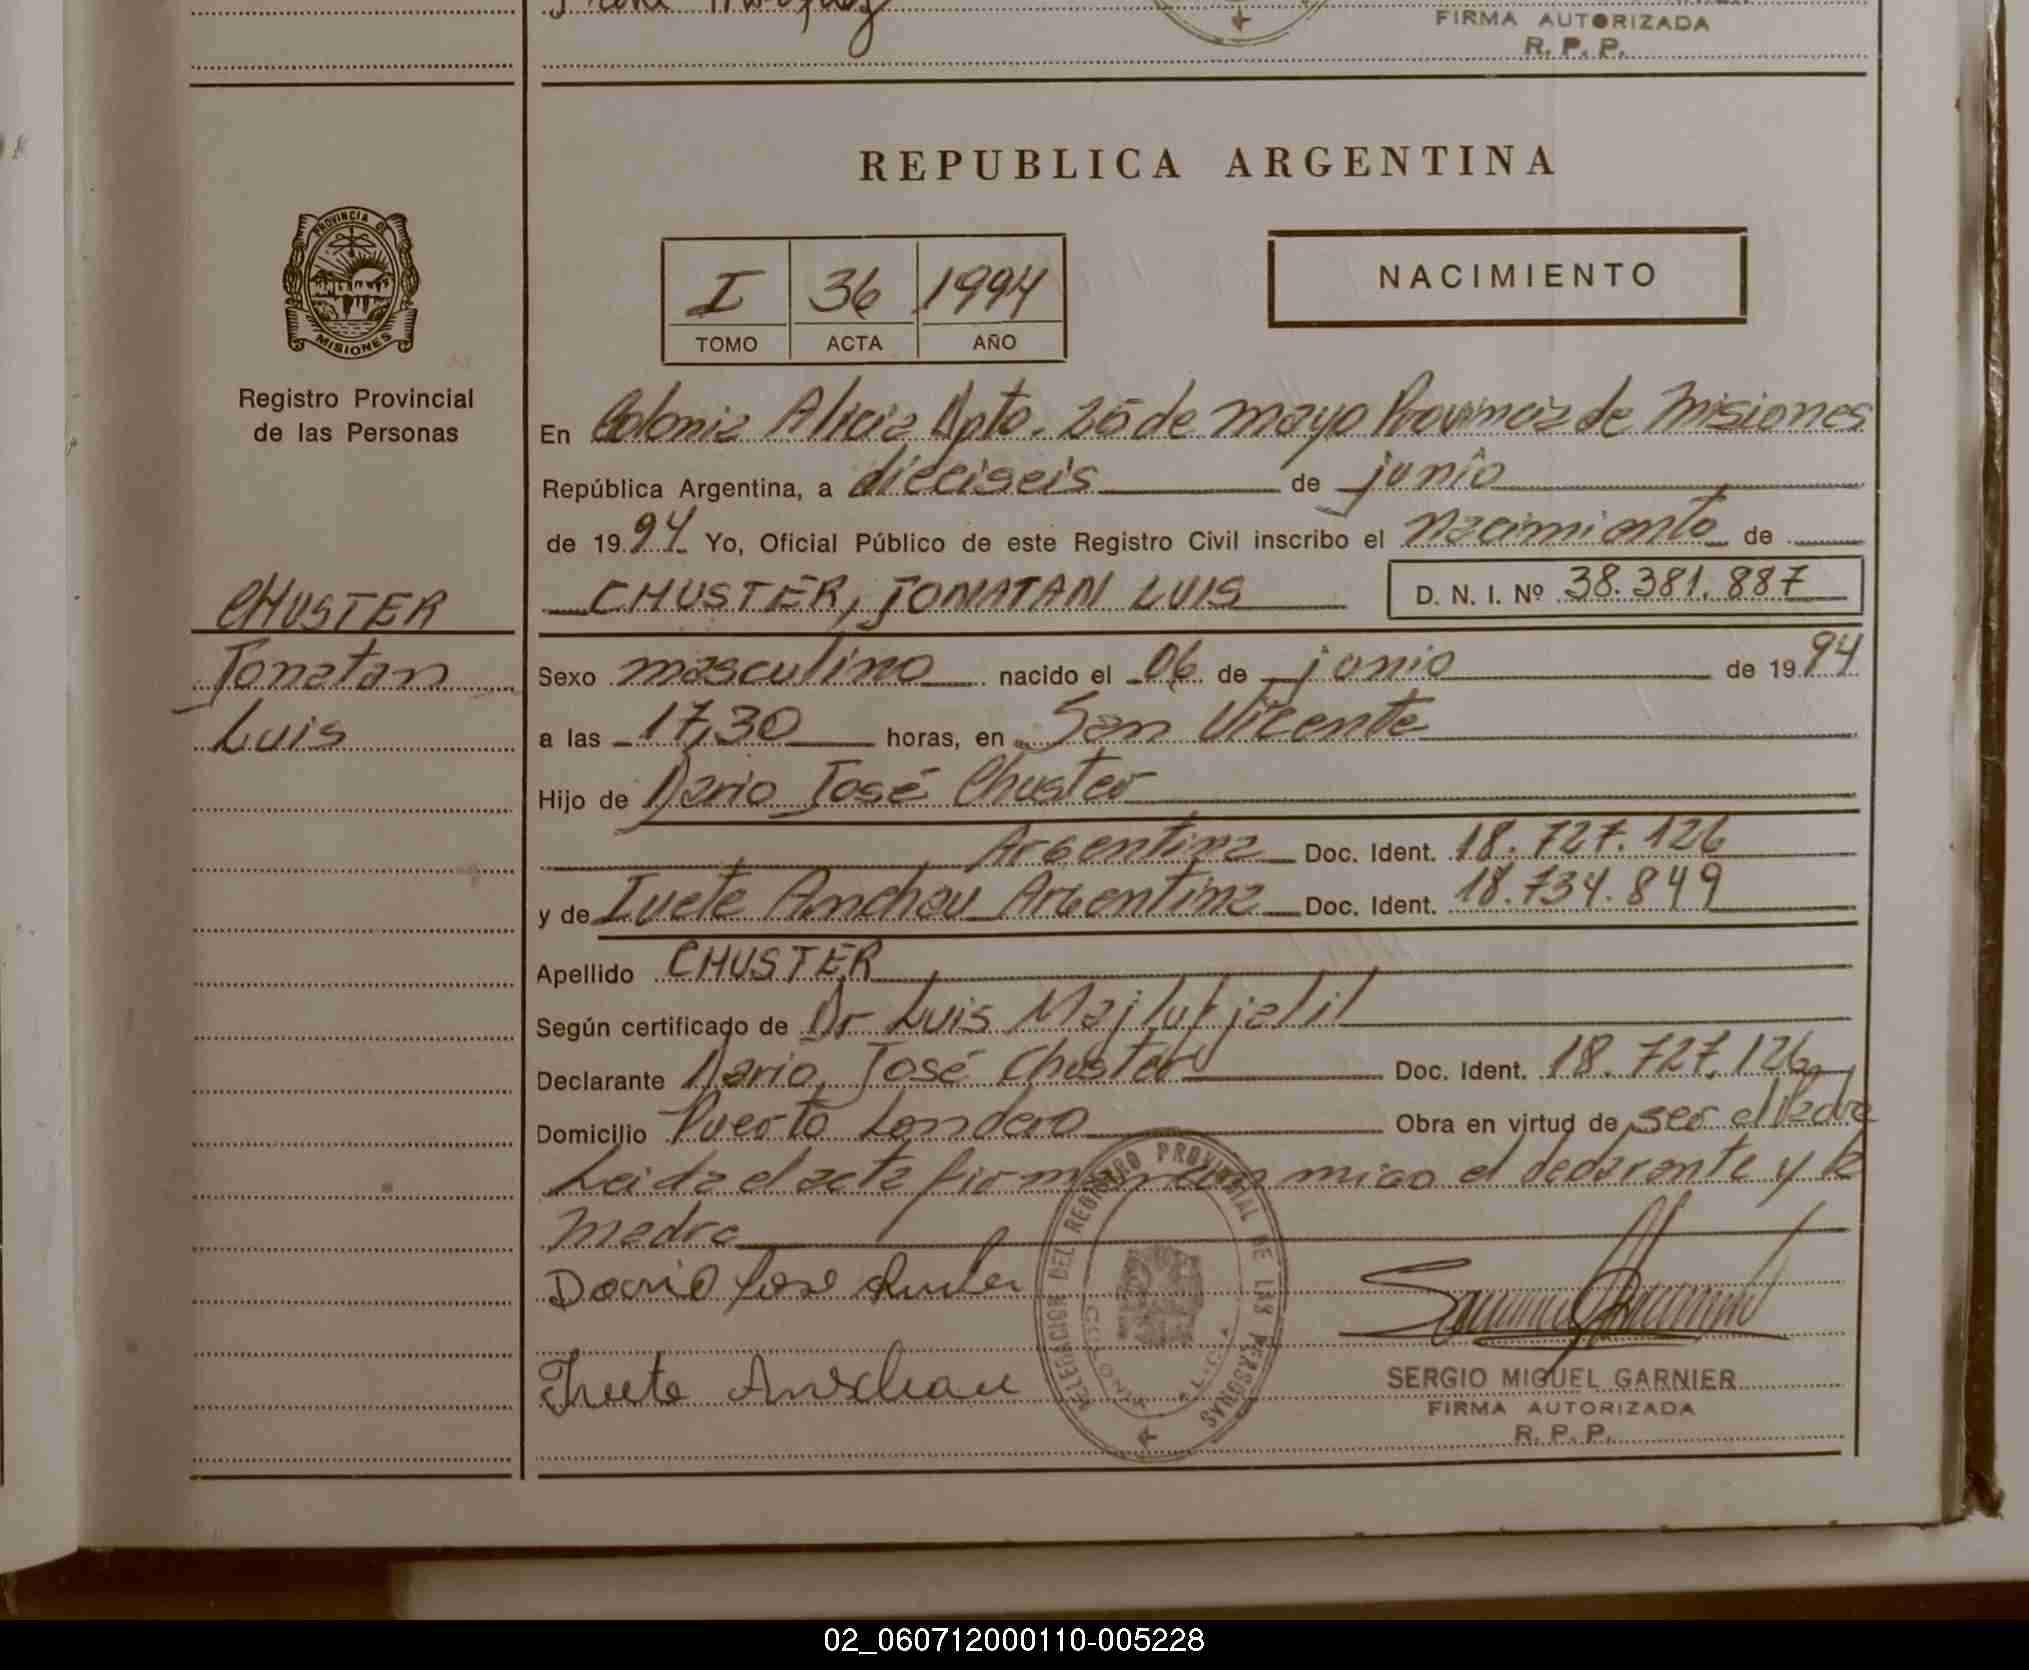 FIRMA AUTORIZADA
R. P. P.
REPUBLICA ARGENTINA
PROVINCIA DE
MISIONES
Registro Provincial
de las Personas
I 36 1994
TOMO ACTA AÑO
NACIMIENTO
En Colonia Alicia Dpto. 25 de mayo Provincia de Misiones
República Argentina, a dieciseis de junio
de 1994 Yo, Oficial Público de este Registro Civil inscribo el Nacimiento de
CHUSTER, JONATAN LUIS D. N. I. Nº 38.381.887
CHUSTER
Jonatan
Luis
Sexo masculino nacido el 06 de junio de 1994
a las 17,30 horas, en San Vicente
Hijo de Dario José Chuster
Argentina Doc. Ident. 18.727.126
y de Ivete Anschau Argentina Doc. Ident. 18.734.849
Apellido CHUSTER
Según certificado de Dr Luis Majluf jalil
Declarante Dario José Chuster Doc. Ident. 18.727.126
Domicilio Puerto Londero Obra en virtud de ser el Padre
Leida el acta firman conmigo el declarante y la
madre
Dario Jose Chuster
Ivete Anschau
DELEGACION DEL REGISTRO PROVINCIAL DE LAS PERSONAS
COLONIA ALICIA
SERGIO MIGUEL GARNIER
FIRMA AUTORIZADA
R. P. P.
02_060712000110-005228